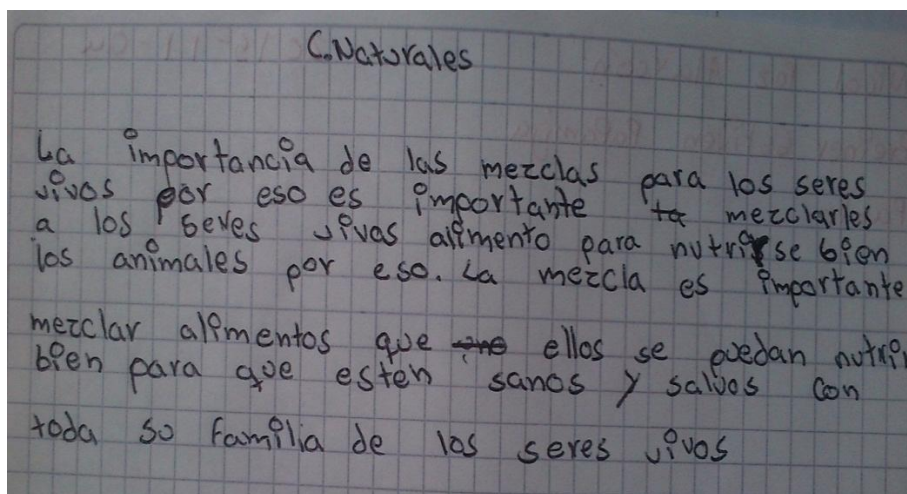 C.Naturales
La importancia de las mezclas para los seres
vivos por eso es importante mezclarles
a los seres vivos alimento para nutrirse bien
los animales por eso. La mezcla es importante
mezclar alimentos que ellos se puedan nutrir
bien para que esten sanos y salvos con
toda su familia de los seres vivos